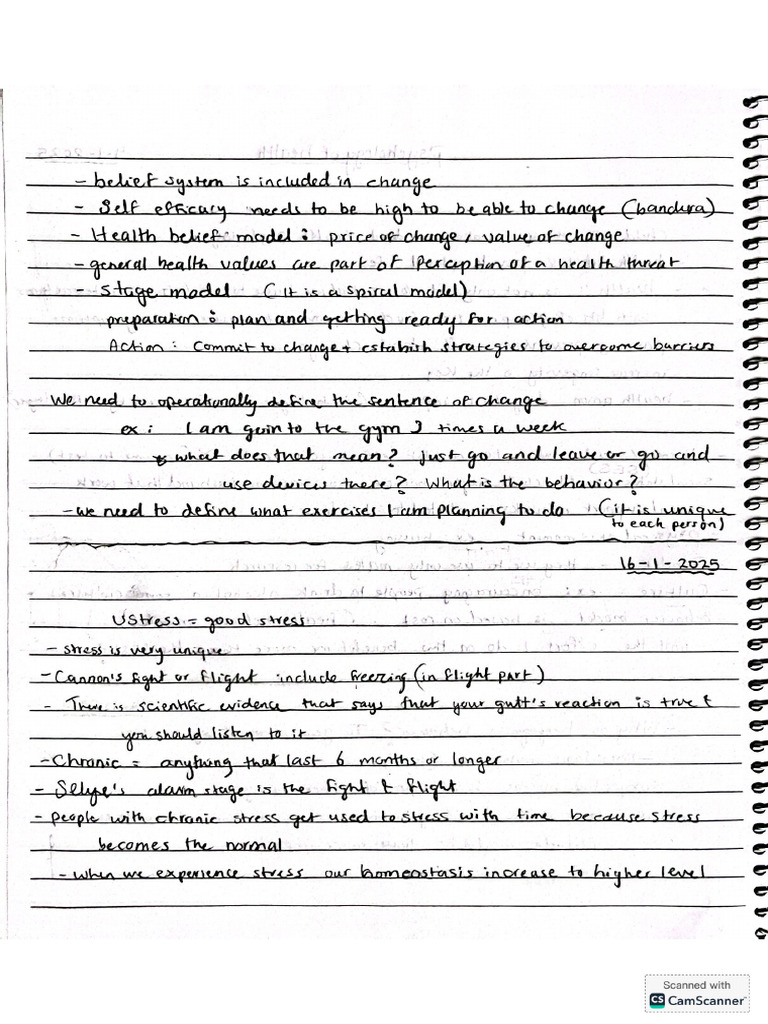 - belief system is included in change
- Self efficacy needs to be high to be able to change (bandura)
- Health belief model : price of change, value of change
- general health values are part of Perception of a health threat
- stage model (it is a spiral model)
preparation : plan and getting ready for action
Action : Commit to change + estabish strategies to overcome barriers
We need to operationally define the sentence of change
ex : I am goin to the gym 3 times a week
* what does that mean? just go and leave or go and
use devices there? What is the behavior?
- we need to define what exercises I am planning to do (it is unique
to each person)
16-1-2025
Ustress = good stress
- stress is very unique
- Cannon's fight or flight include freezing (in flight part)
- There is scientific evidence that says that your gutt's reaction is true &
you should listen to it
- Chronic = anything that last 6 months or longer
- Sélye's alarm stage is the fight & flight
- people with chronic stress get used to stress with time because stress
becomes the normal
- when we experience stress our homeostasis increase to higher level
Scanned with
CS CamScanner